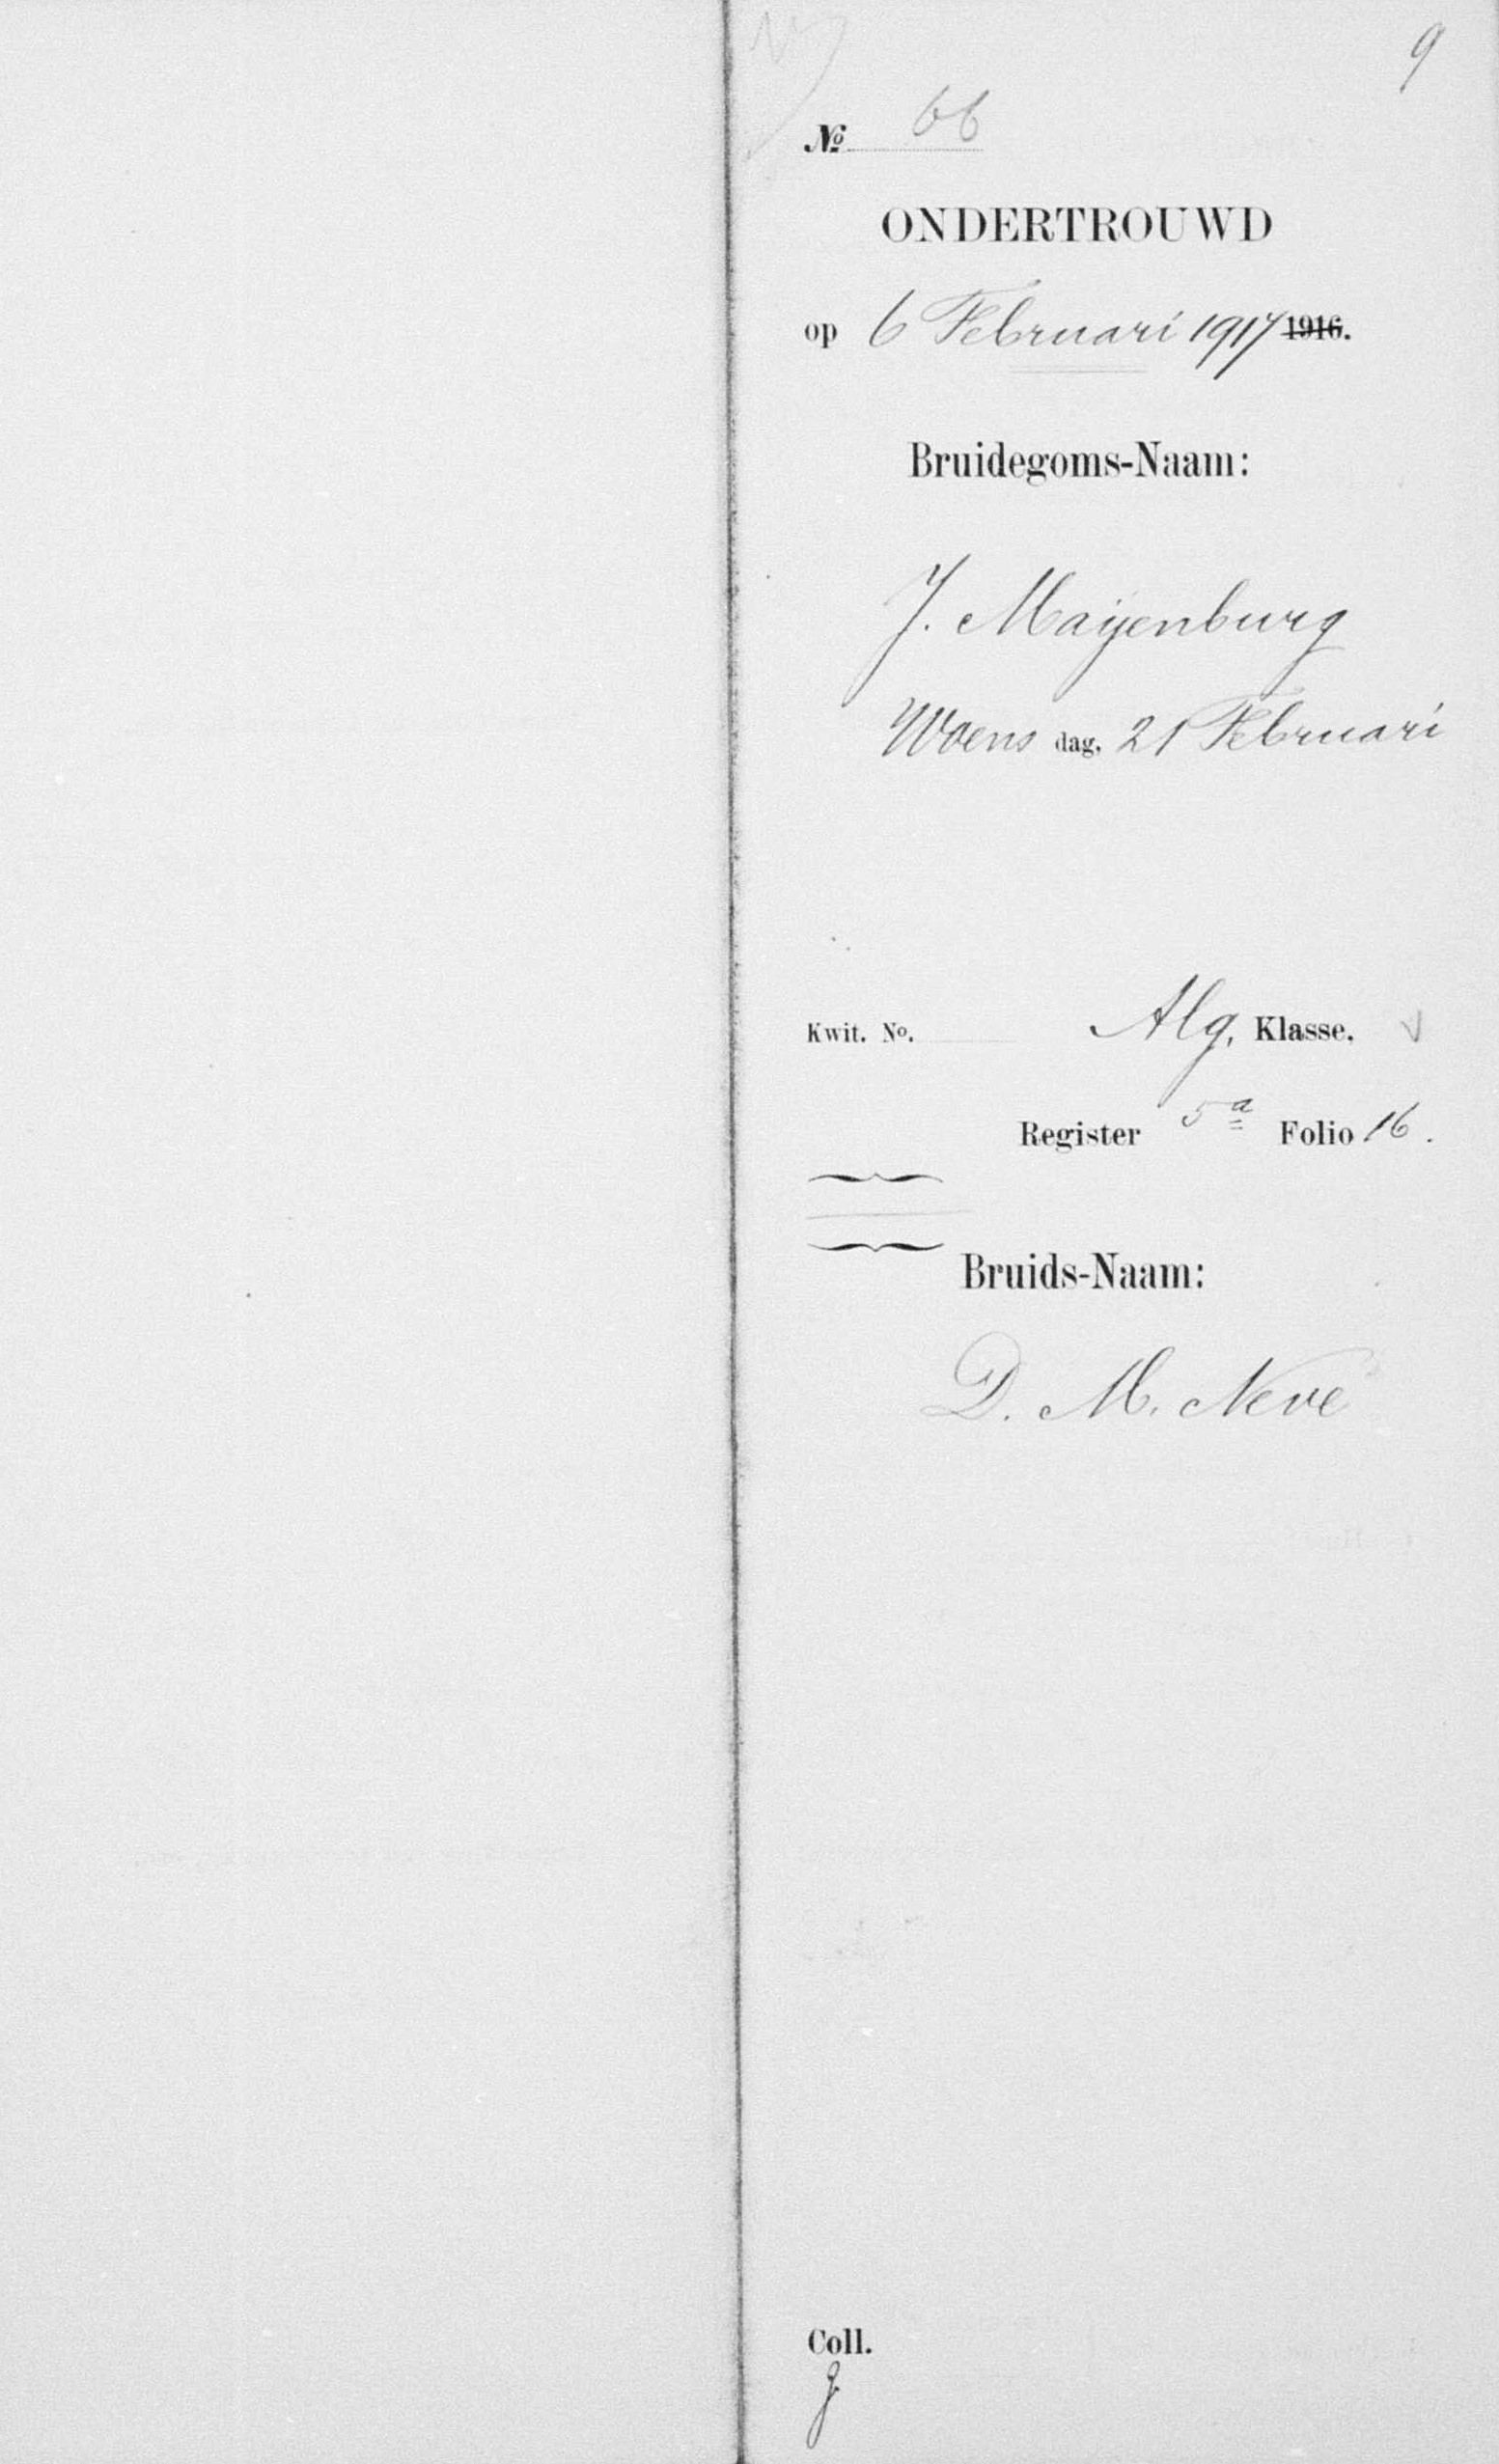 9
No 66
ONDERTROUWD
op 6 Februari 1917 1916.
Bruidegoms-Naam:
J. Maijenburg
Woens dag, 21 Februari
Kwit. No. Alg. Klasse.
Register 5a Folio 16.
Bruids-Naam:
D. M. Neve
Coll.